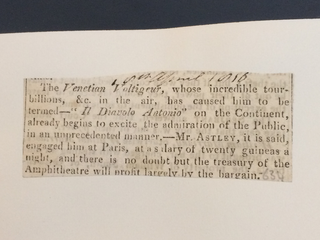 9th April 1816
The Venetian Voltigeur, whose incredible tour-
billions, &c. in the air, has caused him to be
termed—"Il Diavolo Antonio" on the Continent,
already begins to excite the admiration of the Public,
in an unprecedented manner.—Mr. ASTLEY, it is said,
engaged him at Paris, at a salary of twenty guineas a
night, and there is no doubt but the treasury of the
Amphitheatre will profit largely by the bargain.